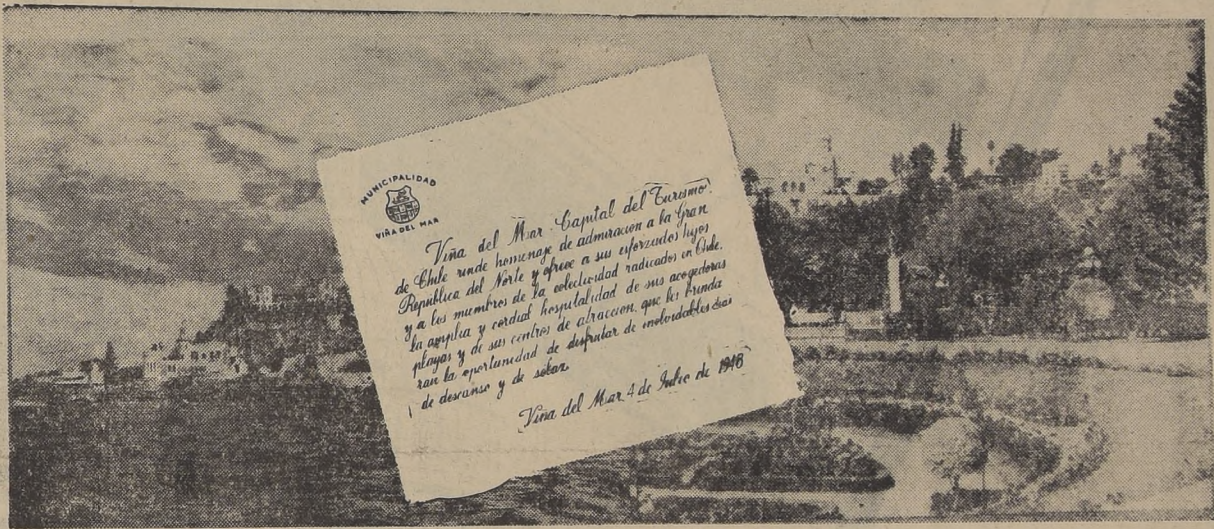 MUNICIPALIDAD
VIÑA DEL MAR
Viña del Mar Capital del Turismo
de Chile rinde homenaje de admiracion a la Gran
República del Norte y ofrece a sus esforzados hijos
y a los miembros de la colectividad radicados en Chile,
la amplia y cordial hospitalidad de sus acogedoras
playas y de sus centros de atraccion, que les brinda
ran la oportunidad de disfrutar de inolvidables dias
de descanso y de solaz
Viña del Mar 4 de Julio de 1946